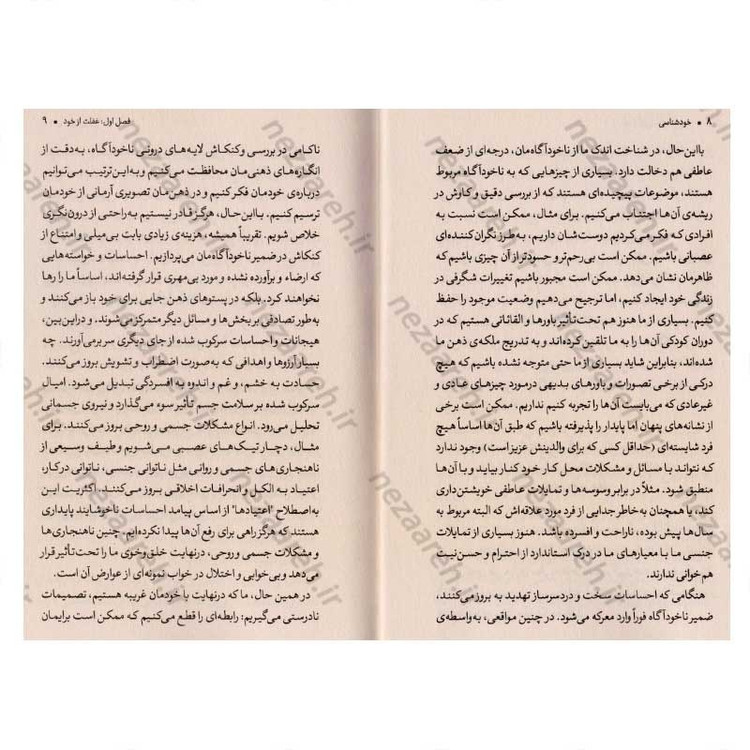 ۸ • خودشناسی
بااین‌حال، در شناخت اندک ما از ناخودآگاه‌مان، درجه‌ای از ضعف
عاطفی هم دخالت دارد. بسیاری از چیزهایی که به ناخودآگاه مربوط
هستند، موضوعات پیچیده‌ای هستند که از بررسی دقیق و کاوش در
ریشه‌ی آن‌ها اجتناب می‌کنیم. برای مثال، ممکن است نسبت به
افرادی که فکر می‌کردیم دوست‌شان داریم، به‌طرز نگران‌کننده‌ای
عصبانی باشیم. ممکن است بی‌رحم‌تر و حسودتر از آن چیزی باشیم که
ظاهرمان نشان می‌دهد. ممکن است مجبور باشیم تغییرات شگرفی در
زندگی خود ایجاد کنیم، اما ترجیح می‌دهیم وضعیت موجود را حفظ
کنیم. بسیاری از ما هنوز هم تحت‌تأثیر باورها و القائاتی هستیم که در
دوران کودکی آن‌ها را به ما تلقین کرده‌اند و به تدریج ملکه‌ی ذهن ما
شده‌اند، بنابراین شاید بسیاری از ما حتی متوجه نشده باشیم که هیچ
درکی از برخی تصورات و باورهای بدیهی درمورد چیزهای عادی و
غیرعادی که می‌بایست آن‌ها را تجربه کنیم نداریم. ممکن است برخی
از نشانه‌های پنهان اما پایدار را پذیرفته باشیم که طبق آن‌ها اساساً هیچ
فرد شایسته‌ای (حداقل کسی که برای والدینش عزیز است) وجود ندارد
که نتواند با مسائل و مشکلات محل کار خود کنار بیاید و با آن‌ها
منطبق شود. مثلاً در برابر وسوسه‌ها و تمایلات عاطفی خویشتن‌داری
کند، یا همچنان به خاطر جدایی از فرد مورد علاقه‌اش که البته مربوط به
سال‌ها پیش بوده، ناراحت و افسرده باشد. هنوز بسیاری از تمایلات
جنسی ما با معیارهای ما در درک استاندارد از احترام و حسن‌نیت
هم‌خوانی ندارند.
هنگامی که احساسات سخت و دردسرساز تهدید به بروز می‌کنند،
ضمیر ناخودآگاه فوراً وارد معرکه می‌شود. در چنین مواقعی، به‌واسطه‌ی
فصل اول: غفلت از خود • ۹
ناکامی در بررسی و کنکاش لایه‌های درونی ناخودآگاه، به‌دقت از
انگاره‌های ذهنی‌مان محافظت می‌کنیم و به‌این‌ترتیب می‌توانیم
درباره‌ی خودمان فکر کنیم و در ذهن‌مان تصویری آرمانی از خودمان
ترسیم کنیم. بااین‌حال، هرگز قادر نیستیم به‌راحتی از درون‌نگری
خلاص شویم. تقریباً همیشه، هزینه‌ی زیادی بابت بی‌میلی و امتناع از
کنکاش در ضمیر ناخودآگاه‌مان می‌پردازیم. احساسات و خواسته‌هایی
که ارضاء و برآورده نشده و مورد بی‌مهری قرار گرفته‌اند، اساساً ما را رها
نخواهند کرد. بلکه در پستوهای ذهن جایی برای خود باز می‌کنند و
به‌طور تصادفی بر بخش‌ها و مسائل دیگر متمرکز می‌شوند. و دراین‌بین،
هیجانات و احساسات سرکوب شده از جای دیگری سر برمی‌آورند. چه
بسیار آرزوها و اهدافی که به‌صورت اضطراب و تشویش بروز می‌کنند.
حسادت به خشم، و غم و اندوه به افسردگی تبدیل می‌شود. امیال
سرکوب شده بر سلامت جسم تأثیر سوء می‌گذارد و نیروی جسمانی
تحلیل می‌رود. انواع مشکلات جسمی و روحی بروز می‌کنند. برای
مثال، دچار تیک‌های عصبی می‌شویم و طیف وسیعی از
ناهنجاری‌های جسمی و روانی مثل ناتوانی جنسی، ناتوانی در کار،
اعتیاد به الکل و انحرافات اخلاقی بروز می‌کنند. اکثریت این
به‌اصطلاح "اعتیادها" از اساس پیامد احساسات ناخوشایند پایداری
هستند که هرگز راهی برای رفع آن‌ها پیدا نکرده‌ایم. چنین ناهنجاری‌ها
و مشکلات جسمی و روحی، درنهایت خلق‌وخوی ما را تحت‌تأثیر قرار
می‌دهد و بی‌خوابی و اختلال در خواب نمونه‌ای از عوارض آن است.
در همین حال، ما که درنهایت با خودمان غریبه هستیم، تصمیمات
نادرستی می‌گیریم: رابطه‌ای را قطع می‌کنیم که ممکن است برایمان
nezaareh.ir